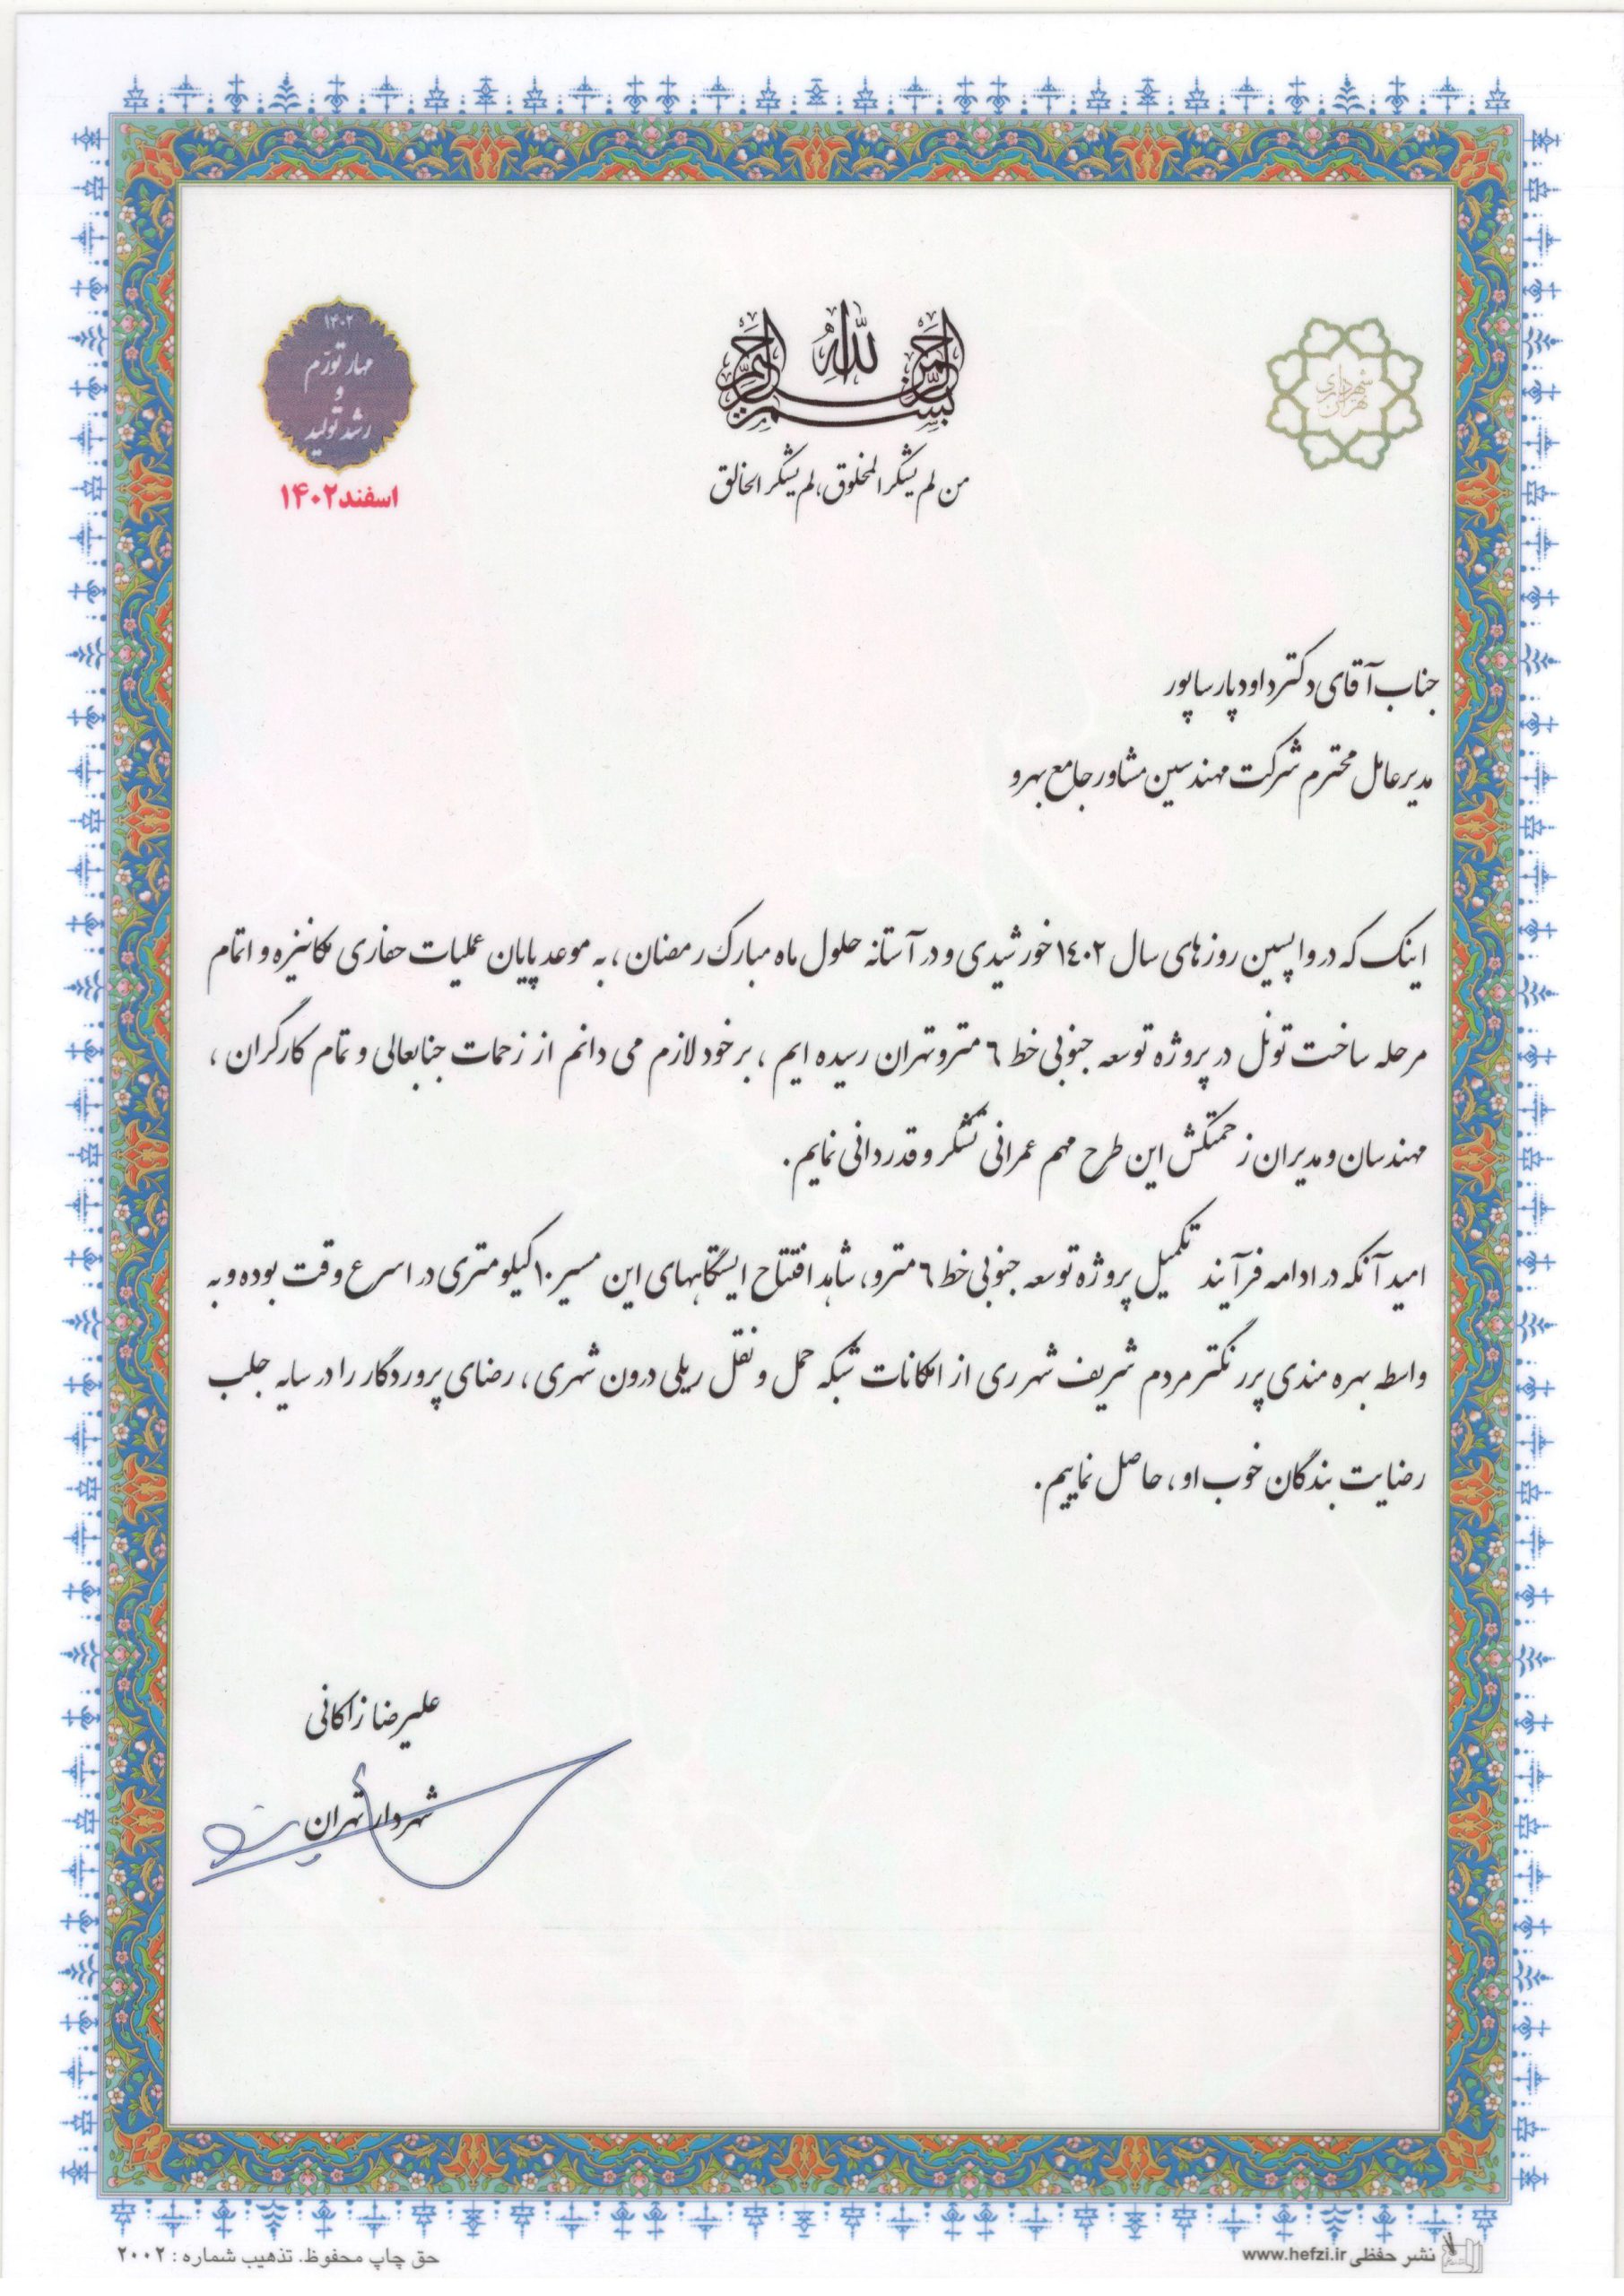 بسم الله الرحمن الرحیم
من لم یشکر المخلوق، لم یشکر الخالق
شهرداری تهران
۱۴۰۲
مهار تورّم
و
رشد تولید
اسفند ۱۴۰۲
جناب آقای دکتر داود پارساپور
مدیرعامل محترم شرکت مهندسین مشاور جامع بهرو
اینک که در واپسین روزهای سال ۱٤۰۲ خورشیدی و در آستانه حلول ماه مبارک رمضان، به موعد پایان عملیات حفاری مکانیزه و اتمام
مرحله ساخت تونل در پروژه توسعه جنوبی خط ٦ مترو تهران رسیده ایم، بر خود لازم می دانم از زحمات جنابعالی و تمام کارگران،
مهندسان و مدیران زحمتکش این طرح مهم عمرانی تشکر و قدردانی نمایم.
امید آنکه در ادامه فرآیند تکمیل پروژه توسعه جنوبی خط ٦ مترو، شاهد افتتاح ایستگاههای این مسیر ۱۰ کیلومتری در اسرع وقت بوده و به
واسطه بهره مندی پررنگتر مردم شریف شهر ری از امکانات شبکه حمل و نقل ریلی درون شهری، رضای پروردگار را در سایه جلب
رضایت بندگان خوب او، حاصل نماییم.
علیرضا زاکانی
شهردار تهران
نشر حفظی www.hefzi.ir
حق چاپ محفوظ. تذهیب شماره : ۲۰۰۲